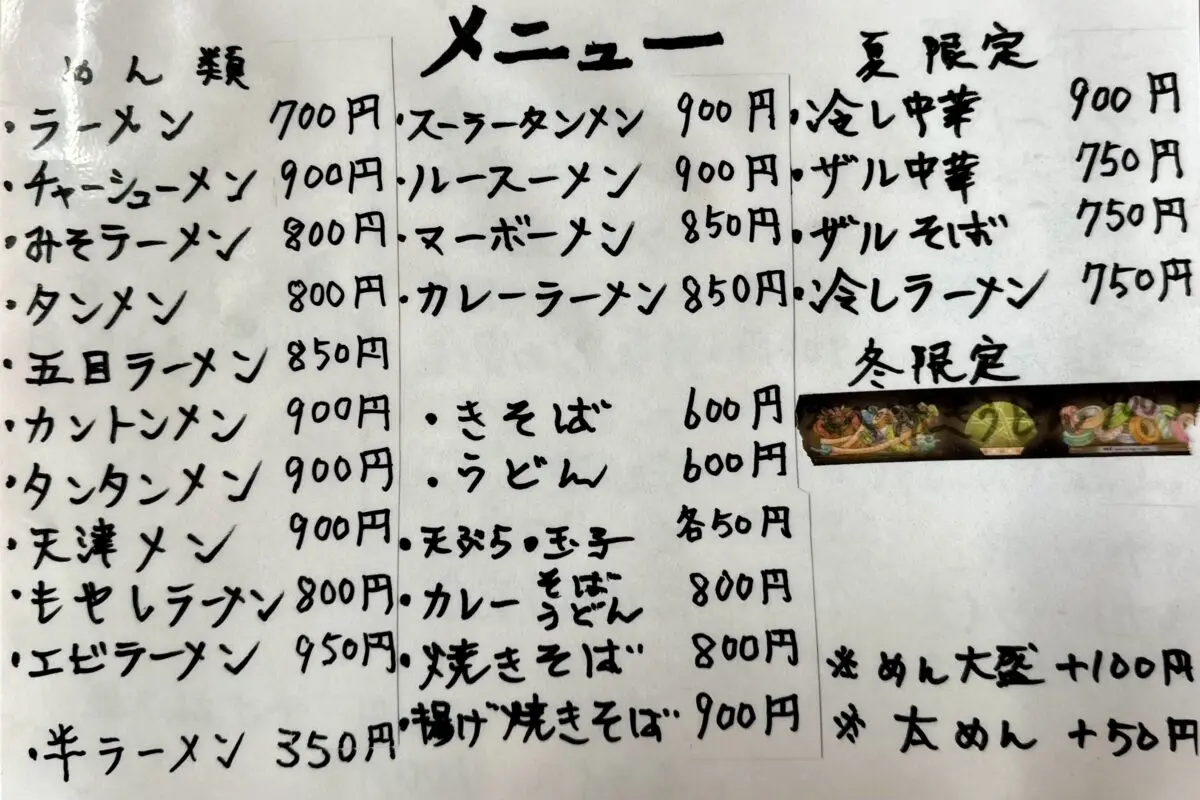 メニュー
めん類
・ラーメン 700円
・チャーシューメン 900円
・みそラーメン 800円
・タンメン 800円
・五目ラーメン 850円
・カントンメン 900円
・タンタンメン 900円
・天津メン 900円
・もやしラーメン 800円
・エビラーメン 950円
・半ラーメン 350円
・スーラータンメン 900円
・ルースーメン 900円
・マーボーメン 850円
・カレーラーメン 850円
・きそば 600円
・うどん 600円
・天ぷら・玉子 各50円
・カレー そば うどん 800円
・焼きそば 800円
・揚げ焼きそば 900円
夏限定
・冷し中華 900円
・ザル中華 750円
・ザルそば 750円
・冷しラーメン 750円
冬限定
※めん大盛 +100円
※太めん +50円